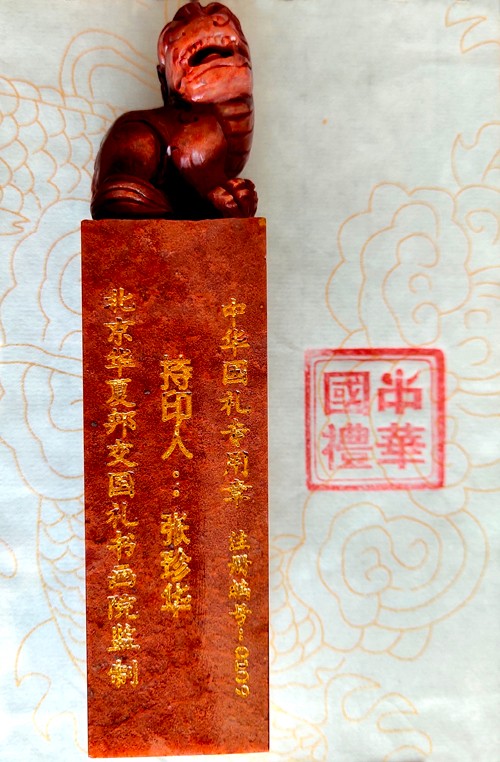 中华国礼专用章 注册编号：0509
持印人：张珍华
北京华夏邦交国礼书画院监制
中華國禮